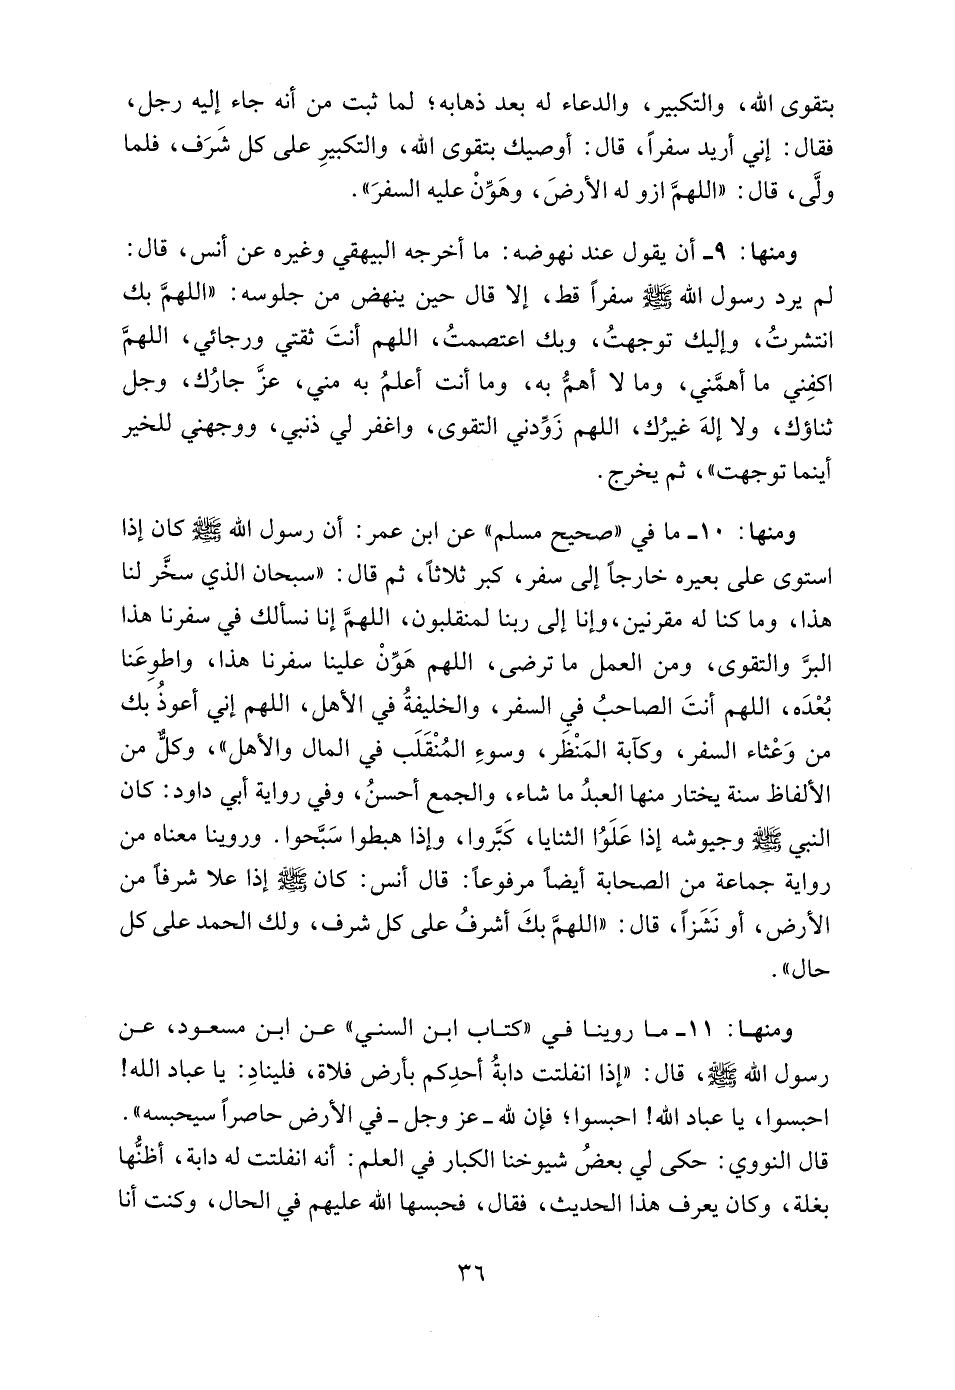 بتقوى الله، والتكبير، والدعاء له بعد ذهابه؛ لما ثبت من أنه جاء إليه رجل،
فقال: إني أريد سفراً، قال: أوصيك بتقوى الله، والتكبيرِ على كل شَرَف، فلما
ولَّى، قال: «اللهمَّ ازو له الأرضَ، وهَوِّنْ عليه السفرَ».
ومنها: ٩ـ أن يقول عند نهوضه: ما أخرجه البيهقي وغيره عن أنس، قال:
لم يرد رسول الله ﷺ سفراً قط، إلا قال حين ينهض من جلوسه: «اللهمَّ بك
انتشرتُ، وإليك توجهتُ، وبك اعتصمتُ، اللهم أنتَ ثقتي ورجائي، اللهمَّ
اكفِني ما أهمَّني، وما لا أهمُّ به، وما أنت أعلمُ به مني، عزَّ جارُك، وجل
ثناؤك، ولا إلهَ غيرُك، اللهم زَوِّدني التقوى، واغفر لي ذنبي، ووجهني للخير
أينما توجهت»، ثم يخرج.
ومنها: ١٠ـ ما في «صحيح مسلم» عن ابن عمر: أن رسول الله ﷺ كان إذا
استوى على بعيره خارجاً إلى سفر، كبر ثلاثاً، ثم قال: «سبحان الذي سخَّر لنا
هذا، وما كنا له مقرنين،وإنا إلى ربنا لمنقلبون، اللهمَّ إنا نسألك في سفرنا هذا
البرَّ والتقوى، ومن العمل ما ترضى، اللهم هَوِّنْ علينا سفرنا هذا، واطوِعَنا
بُعْدَه، اللهم أنتَ الصاحبُ في السفر، والخليفةُ في الأهل، اللهم إني أعوذُ بك
من وَعْثاء السفر، وكآبة المَنْظَر، وسوءِ المُنْقَلَب في المال والأهل»، وكلٌّ من
الألفاظ سنة يختار منها العبدُ ما شاء، والجمع أحسنُ، وفي رواية أبي داود: كان
النبي ﷺ وجيوشه إذا عَلَوُا الثنايا، كَبَّروا، وإذا هبطوا سَبَّحوا. وروينا معناه من
رواية جماعة من الصحابة أيضاً مرفوعاً: قال أنس: كان ﷺ إذا علا شرفاً من
الأرض، أو نَشَزاً، قال: «اللهمَّ بكَ أشرفُ على كل شرف، ولك الحمد على كل
حال».
ومنهـا: ١١ـ مـا روينـا فـي «كتـاب ابـن السنـي» عـن ابـن مسعـود، عـن
رسول الله ﷺ، قال: «إذا انفلتت دابةُ أحدِكم بأرض فلاة، فلينادِ: يا عباد الله!
احبسوا، يا عباد الله! احبسوا؛ فإن لله ـ عز وجل ـ في الأرض حاصراً سيحبسه».
قال النووي: حكى لي بعضُ شيوخنا الكبار في العلم: أنه انفلتت له دابة، أظنُّها
بغلة، وكان يعرف هذا الحديث، فقال، فحبسها الله عليهم في الحال، وكنت أنا
٣٦